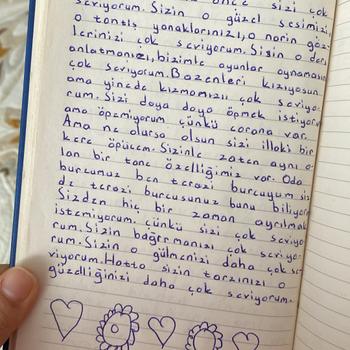 önce sizi çok
seviyorum. Sizin o güzel sesinizi,
o tontiş yonaklorınızı, o norin göz-
lerinizi çok seviyorum. Sizin o ders
anlatmonızı, bizimle oyunlar oynamanızı
çok seviyorum. Bazenleri kızıyosun
ama yinede kızmanızı çok seviyo-
rum. Sizi doya doya öpmek istiyor
ama öpemiyorum çünkü corona var.
Ama ne olursa olsun sizi illaki bir
kere öpücem. Sizinle zaten aynı o-
lan bir tane özelliğimiz var. Oda
burcumuz ben terazi burcuyum siz
de terazi burcusunuz bunu biliyor
Sizden hiç bir zaman ayrılmak
istemiyorum. çünkü sizi çok seviyo-
rum. Sizin bağırmanızı çok seviyo-
rum. Sizin o gülmenizi daha çok se-
viyorum. Hatto sizin tarzınızı o
güzelliğinizi daha çok seviyorum.